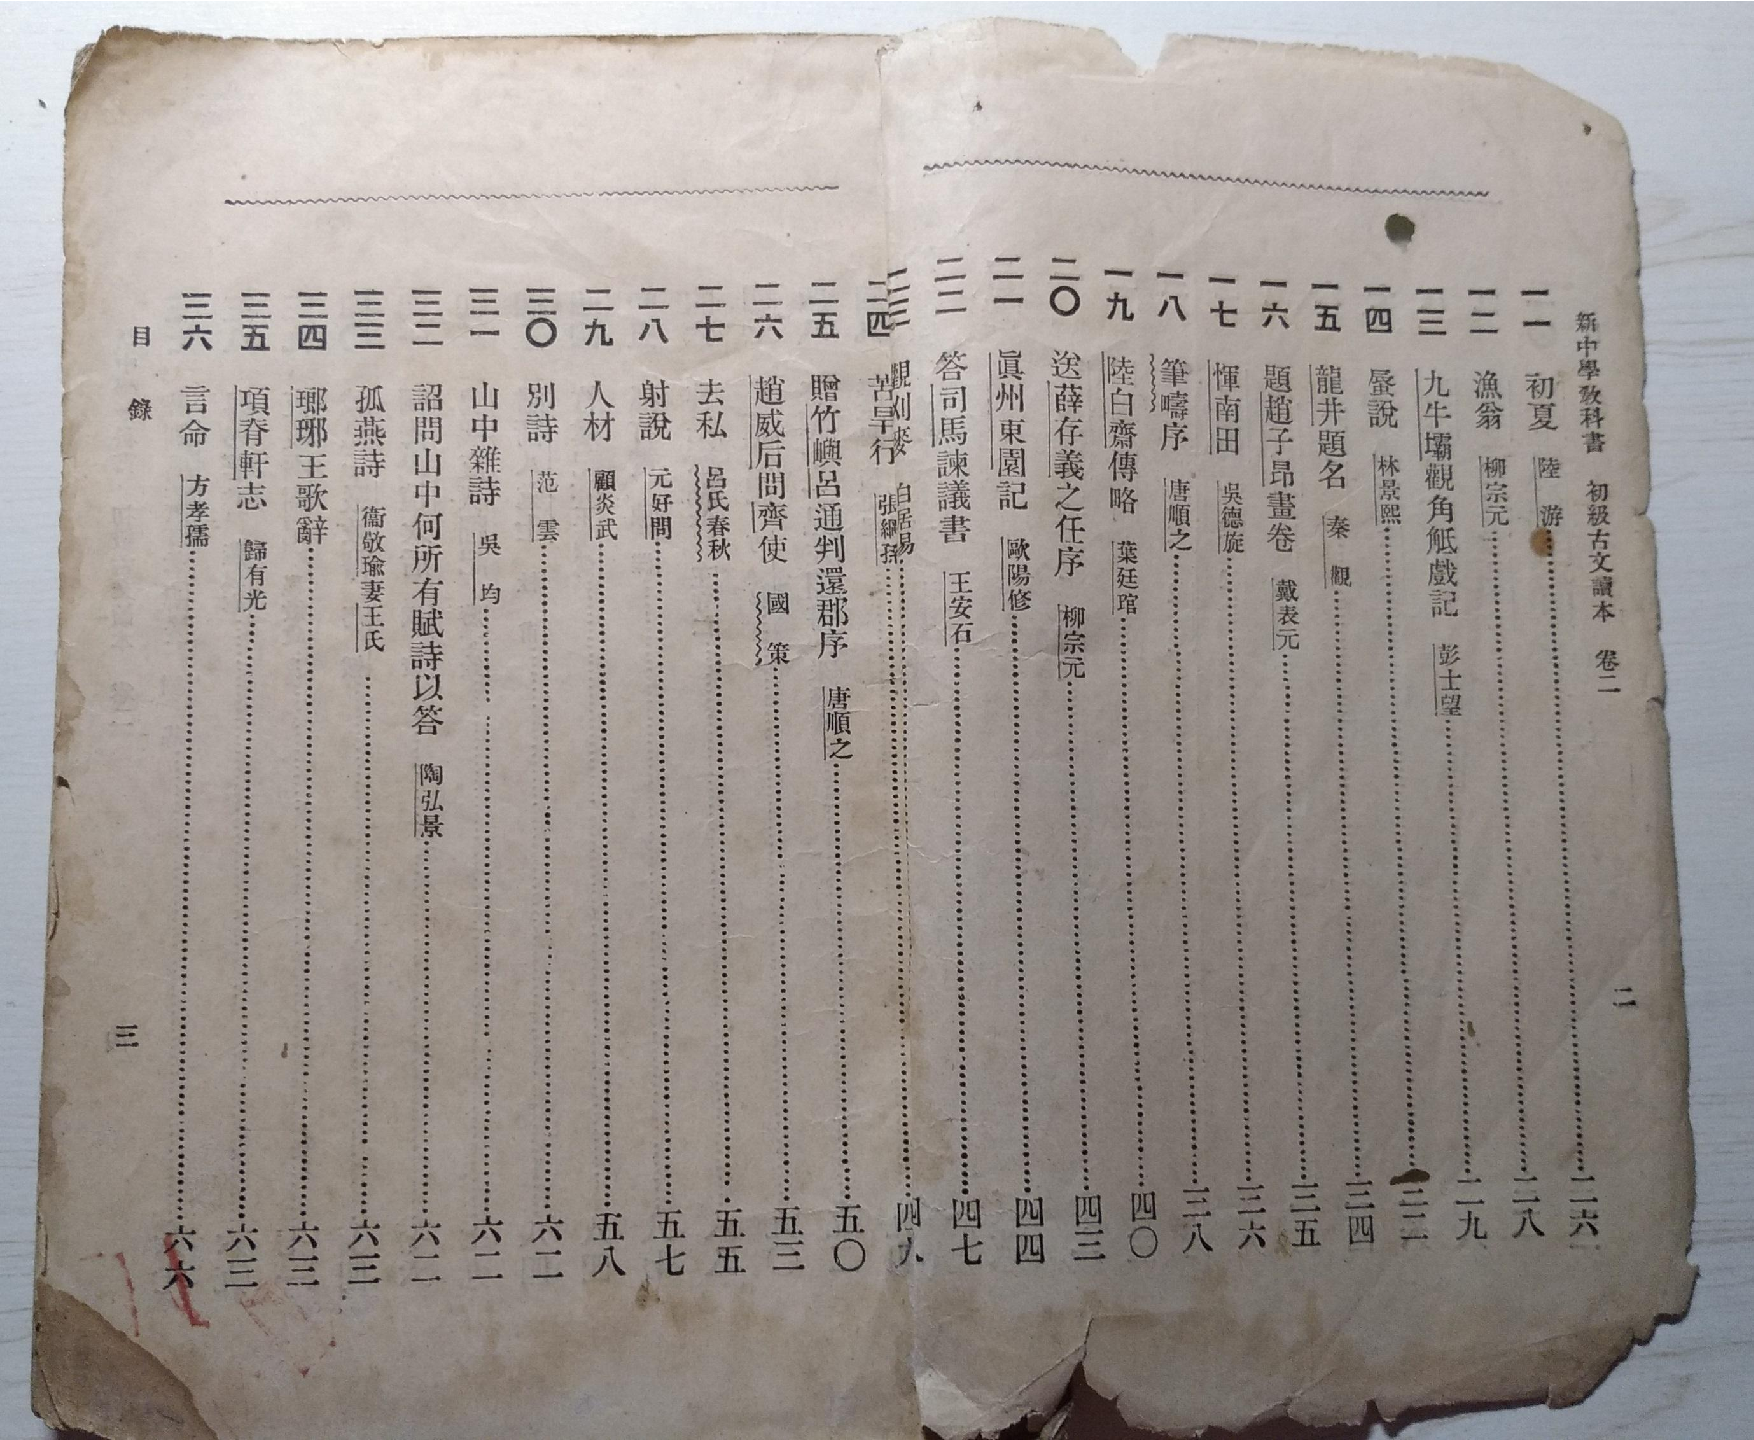 新中學敎科書　初級古文讀本　卷二
二
一一　初夏　陸游……二六
一二　漁翁　柳宗元……二八
一三　九牛壩觀角觝戲記　彭士望……二九
一四　蜃說　林景熙……三二
一五　龍井題名　秦觀……三四
一六　題趙子昂畫卷　戴表元……三五
一七　惲南田　吳德旋……三六
一八　筆疇序　唐順之……三八
一九　陸白齋傳略　葉廷琯……四〇
二〇　送薛存義之任序　柳宗元……四三
二一　眞州東園記　歐陽修……四四
二二　答司馬諫議書　王安石……四七
二三　觀刈麥　白居易……四九
二四　苦旱行　張綱孫
二五　贈竹嶼呂通判還郡序　唐順之……五〇
二六　趙威后問齊使　國策……五三
二七　去私　呂氏春秋……五五
二八　射說　元好問……五七
二九　人材　顧炎武……五八
三〇　別詩　范雲……六二
三一　山中雜詩　吳均……六二
三二　詔問山中何所有賦詩以答　陶弘景……六二
三三　孤燕詩　衞敬瑜妻王氏……六三
三四　瑯琊王歌辭……六三
三五　項脊軒志　歸有光……六三
三六　言命　方孝孺……六六
目錄
三